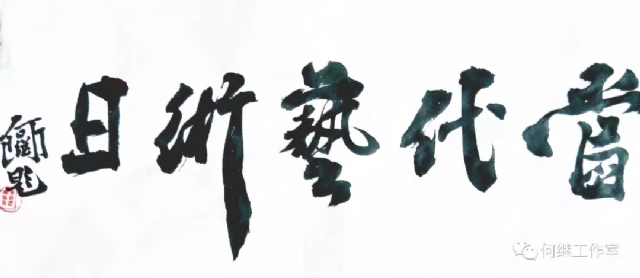 當代藝術日
何继工作室